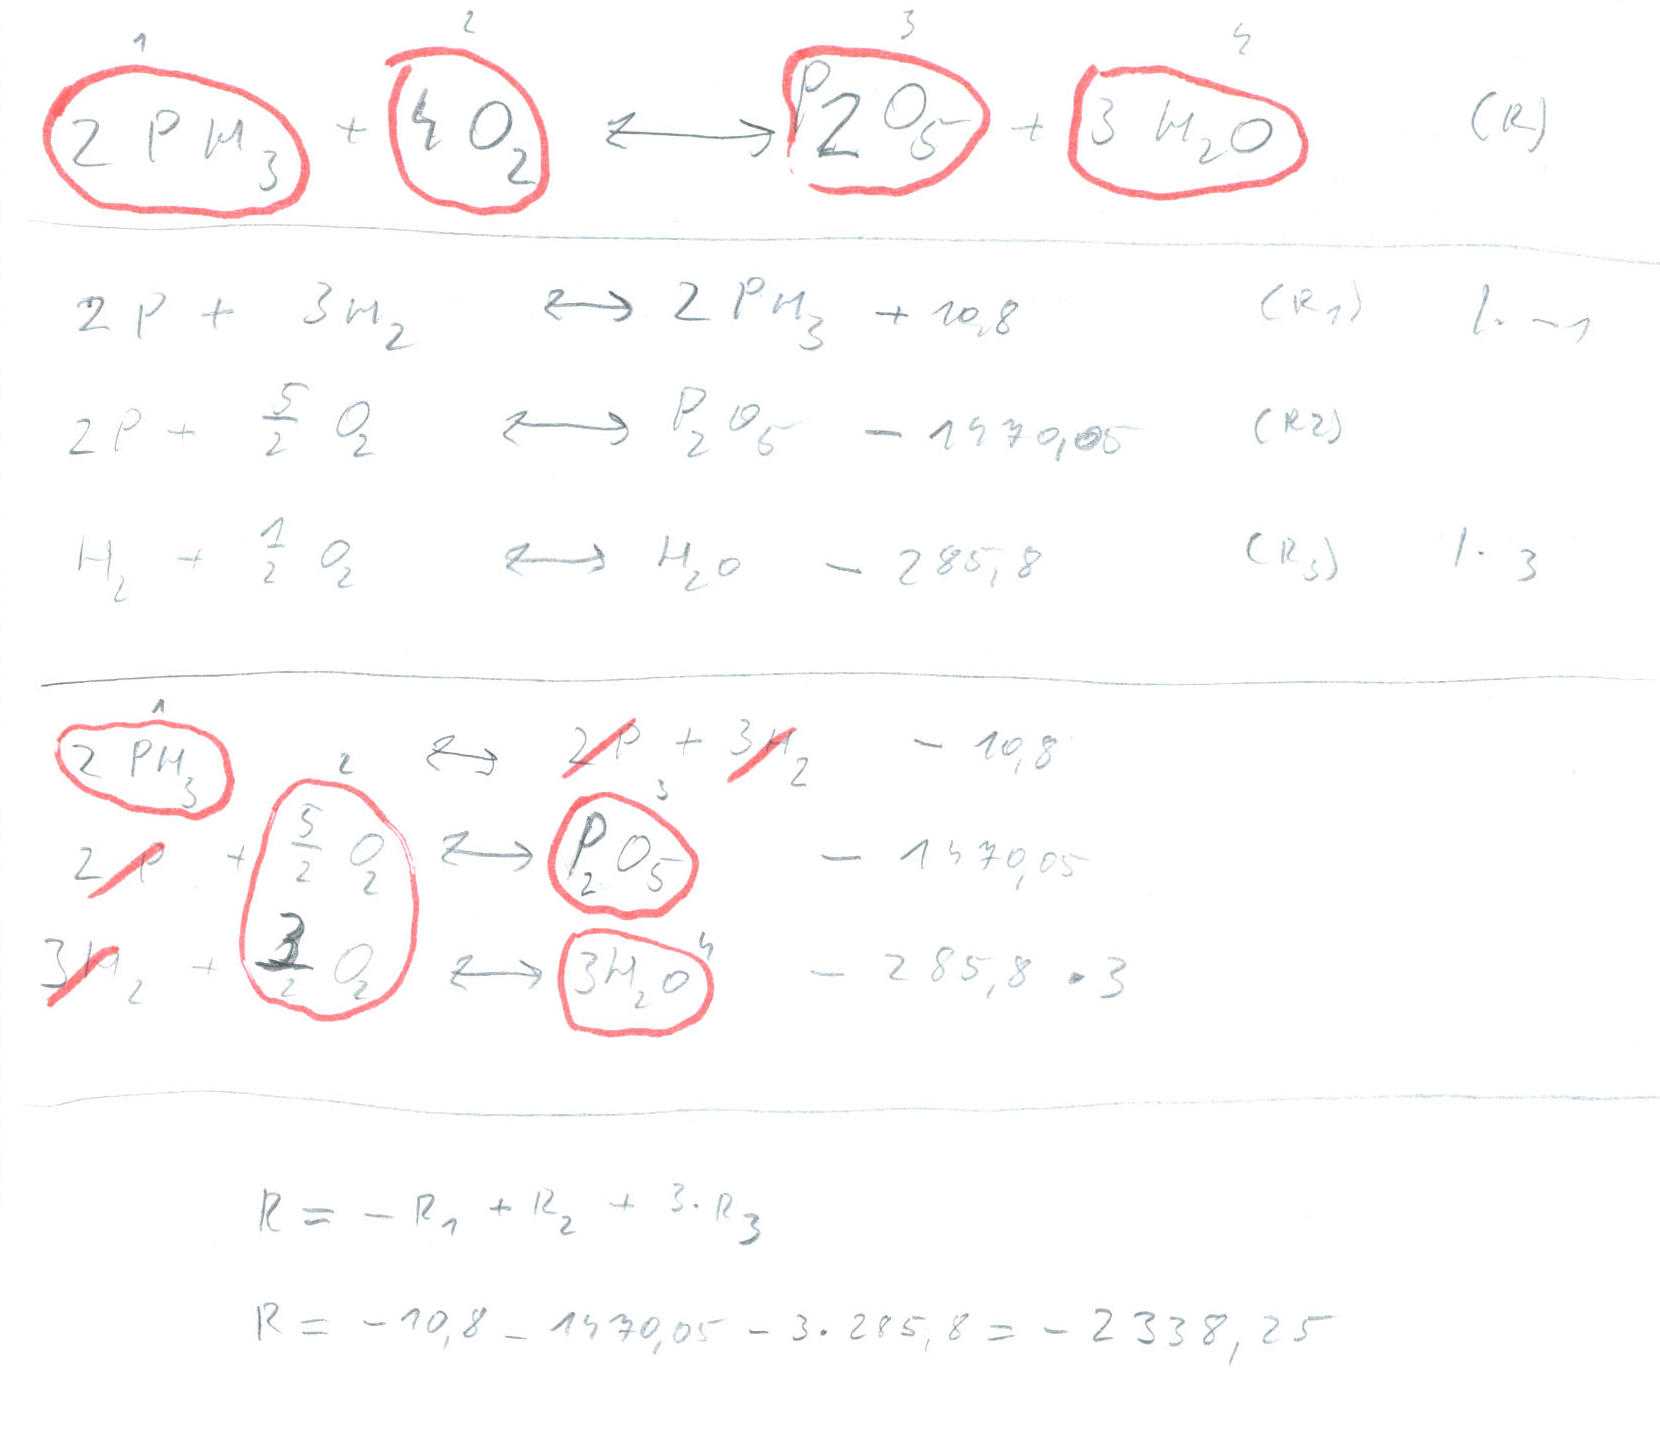 1 2 3 4
2 PH₃ + 4 O₂ ⟷ P₂O₅ + 3 H₂O (R)
2P + 3H₂ ⟷ 2 PH₃ + 10,8 (R₁) /· -1
2P + 5/2 O₂ ⟷ P₂O₅ - 1470,05 (R2)
H₂ + 1/2 O₂ ⟷ H₂O - 285,8 (R₃) /· 3
1
2 PH₃ ⟷ 2P + 3H₂ - 10,8
2 3
2P + 5/2 O₂ ⟷ P₂O₅ - 1470,05
4
3H₂ + 3/2 O₂ ⟷ 3H₂O - 285,8 · 3
R = - R₁ + R₂ + 3·R₃
R = -10,8 - 1470,05 - 3·285,8 = -2338,25